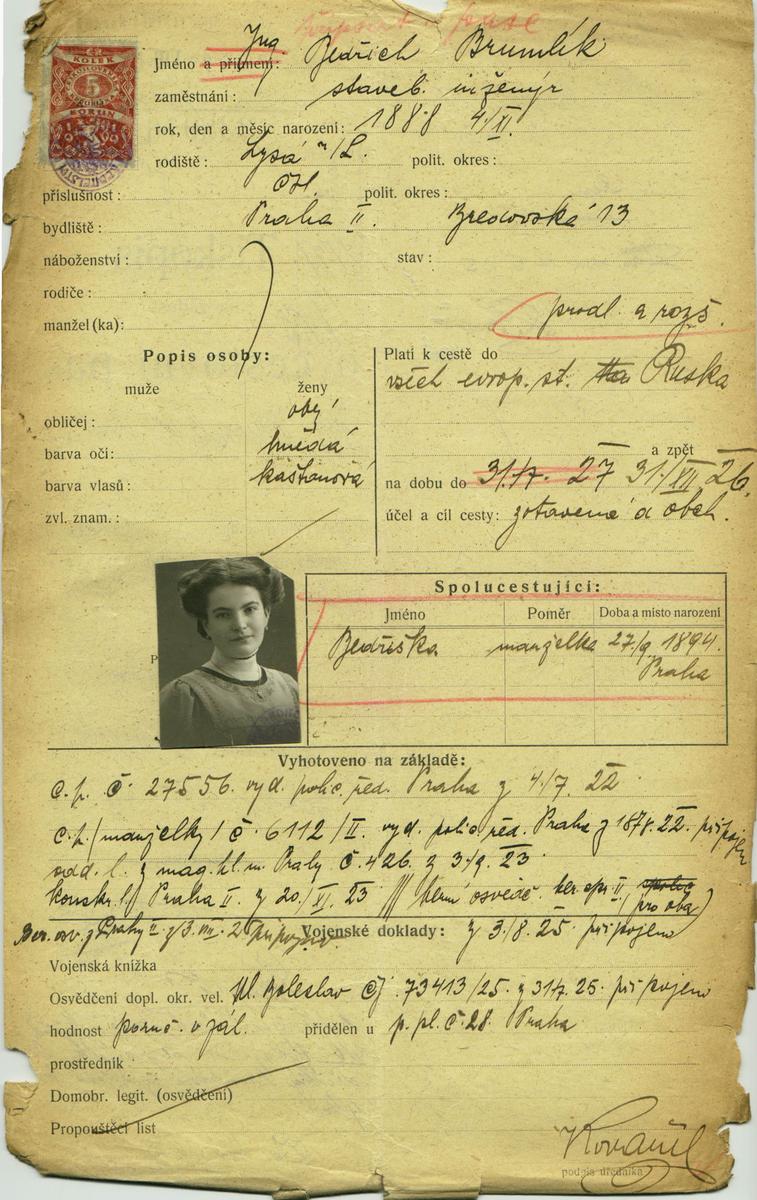 ČR
KOLEK
5
KORUN
1919
Jméno a příjmení: Ing. Bedřich Brumlík
zaměstnání: staveb. inženýr
rok, den a měsíc narození: 1888 4/XI.
rodiště: Lysá n/L. polit. okres:
příslušnost: polit. okres:
bydliště: Praha II. Bredovská 13
náboženství: stav:
rodiče:
manžel (ka): prodl. a rozš.
Popis osoby:
muže ženy
obličej: obl
barva očí: hnědá
barva vlasů: kaštanová
zvl. znam.:
Platí k cestě do
všech evrop. st. Ruska
a zpět
na dobu do 31./7. 27 31./XII 26.
účel a cíl cesty: zotavená a obch.
Spolucestující:
Jméno Poměr Doba a místo narození
Bedřiška manželka 27./9. 1894.
Praha
Vyhotoveno na základě:
c. p. č. 27556. vyd. polic. řed. Praha z 4./7. 22
c. p. /manželky/ č. 6112/II. vyd. polic. řed. Praha z 22. připojen
odd. l. z mag. hl. m. Prahy č. 426. z 3./9. 23
konskr. l. Praha II. z 20./XI. 23 /// berní osvědč. ber. spr. II, pro oba)
Ber. osv. z Prahy II z 3. VIII. připojeno z 3./8. 25 připojeno
Vojenské doklady:
Vojenská knížka
Osvědčení dopl. okr. vel. Ml. Boleslav čj 73413/25. z 31/7. 25. připojeno
hodnost poruč. v zál. přidělen u p. pl. č. 28. Praha
prostředník
Domobr. legit. (osvědčení)
Propouštěcí list
podpis úředníka